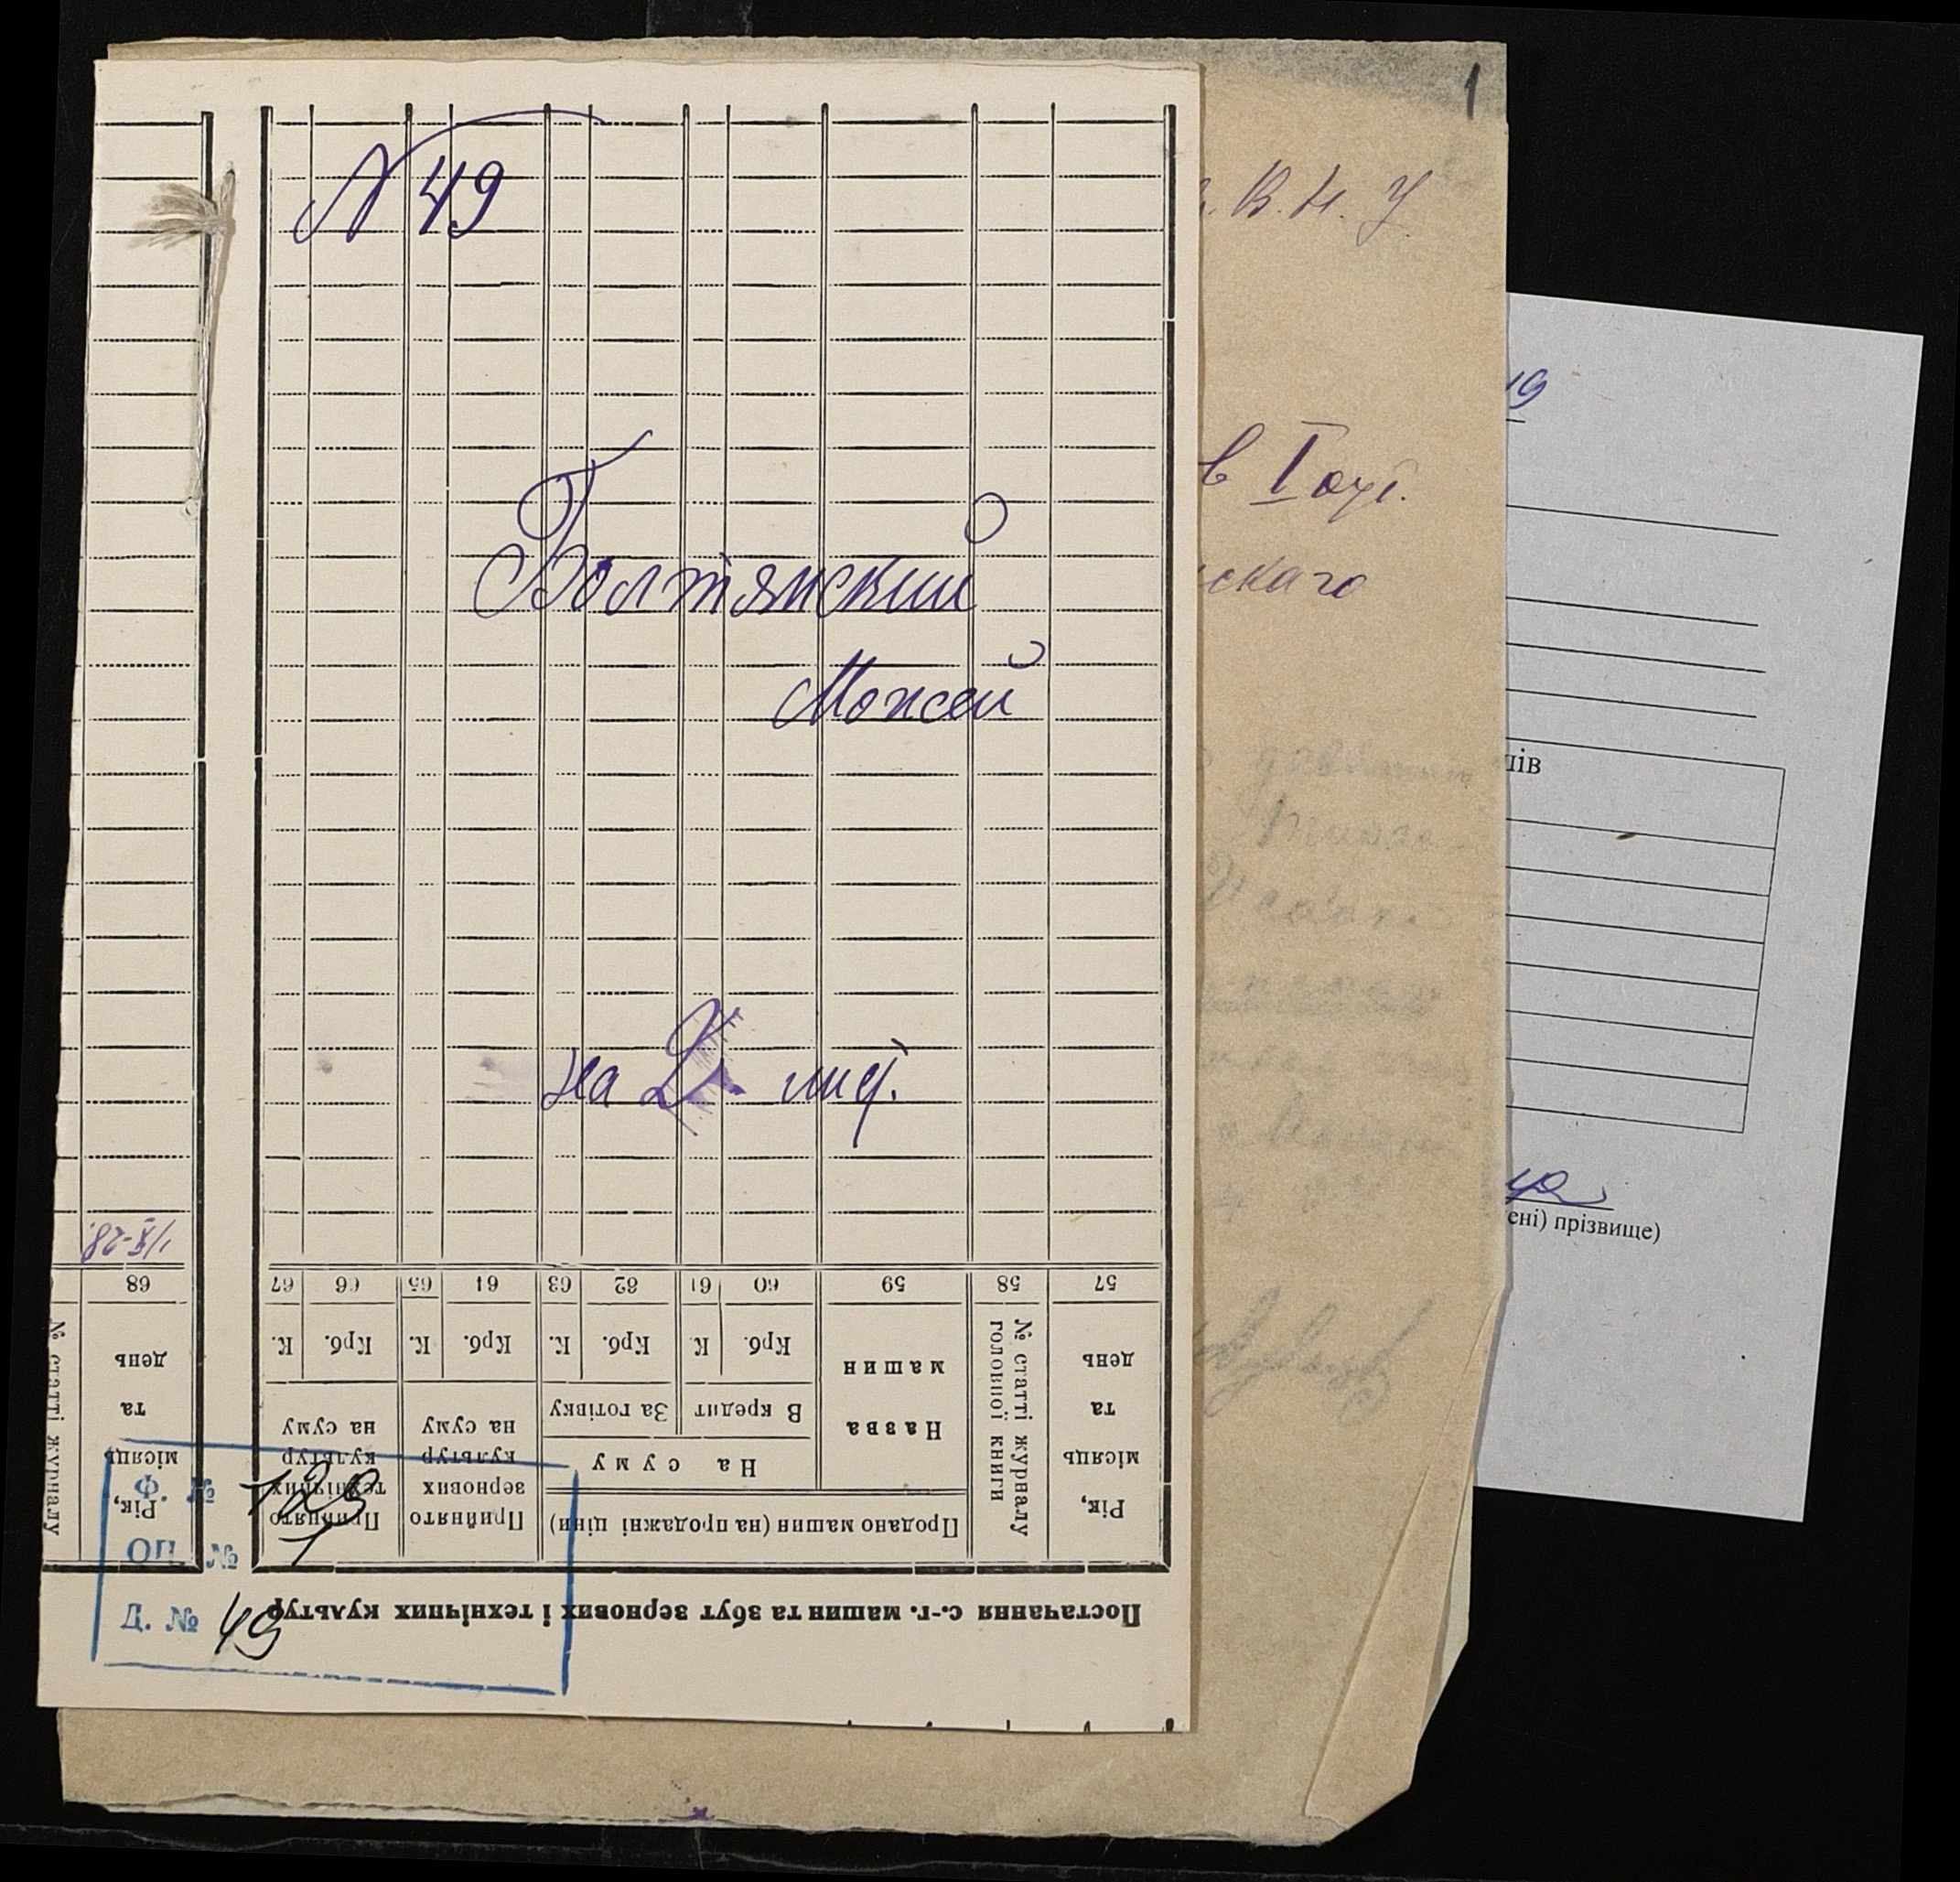 1
№ 49
. В. Н. У
19
в I отд.
Болтянский
скаго
Мойсей
лів
на 2 лист.
ені) прізвище)
1/X-28.
68
67
66
65
64
63
62
61
60
59
58
57
Рік,
місяць
та
день
№ статті журналу
К.
Крб.
К.
Крб.
К.
Крб.
К
Крб.
Прийнято
технічних
культур
на суму
Прийнято
зернових
культур
на суму
Продано машин (на продажні ціни)
На суму
За готівку
В кредит
Назва
машин
№ статті журналу
головної книги
Рік,
місяць
та
день
Постачання с.-г. машин та збут зернових і технічних культур
Ф. № 123
ОП. № 1
Д. № 49